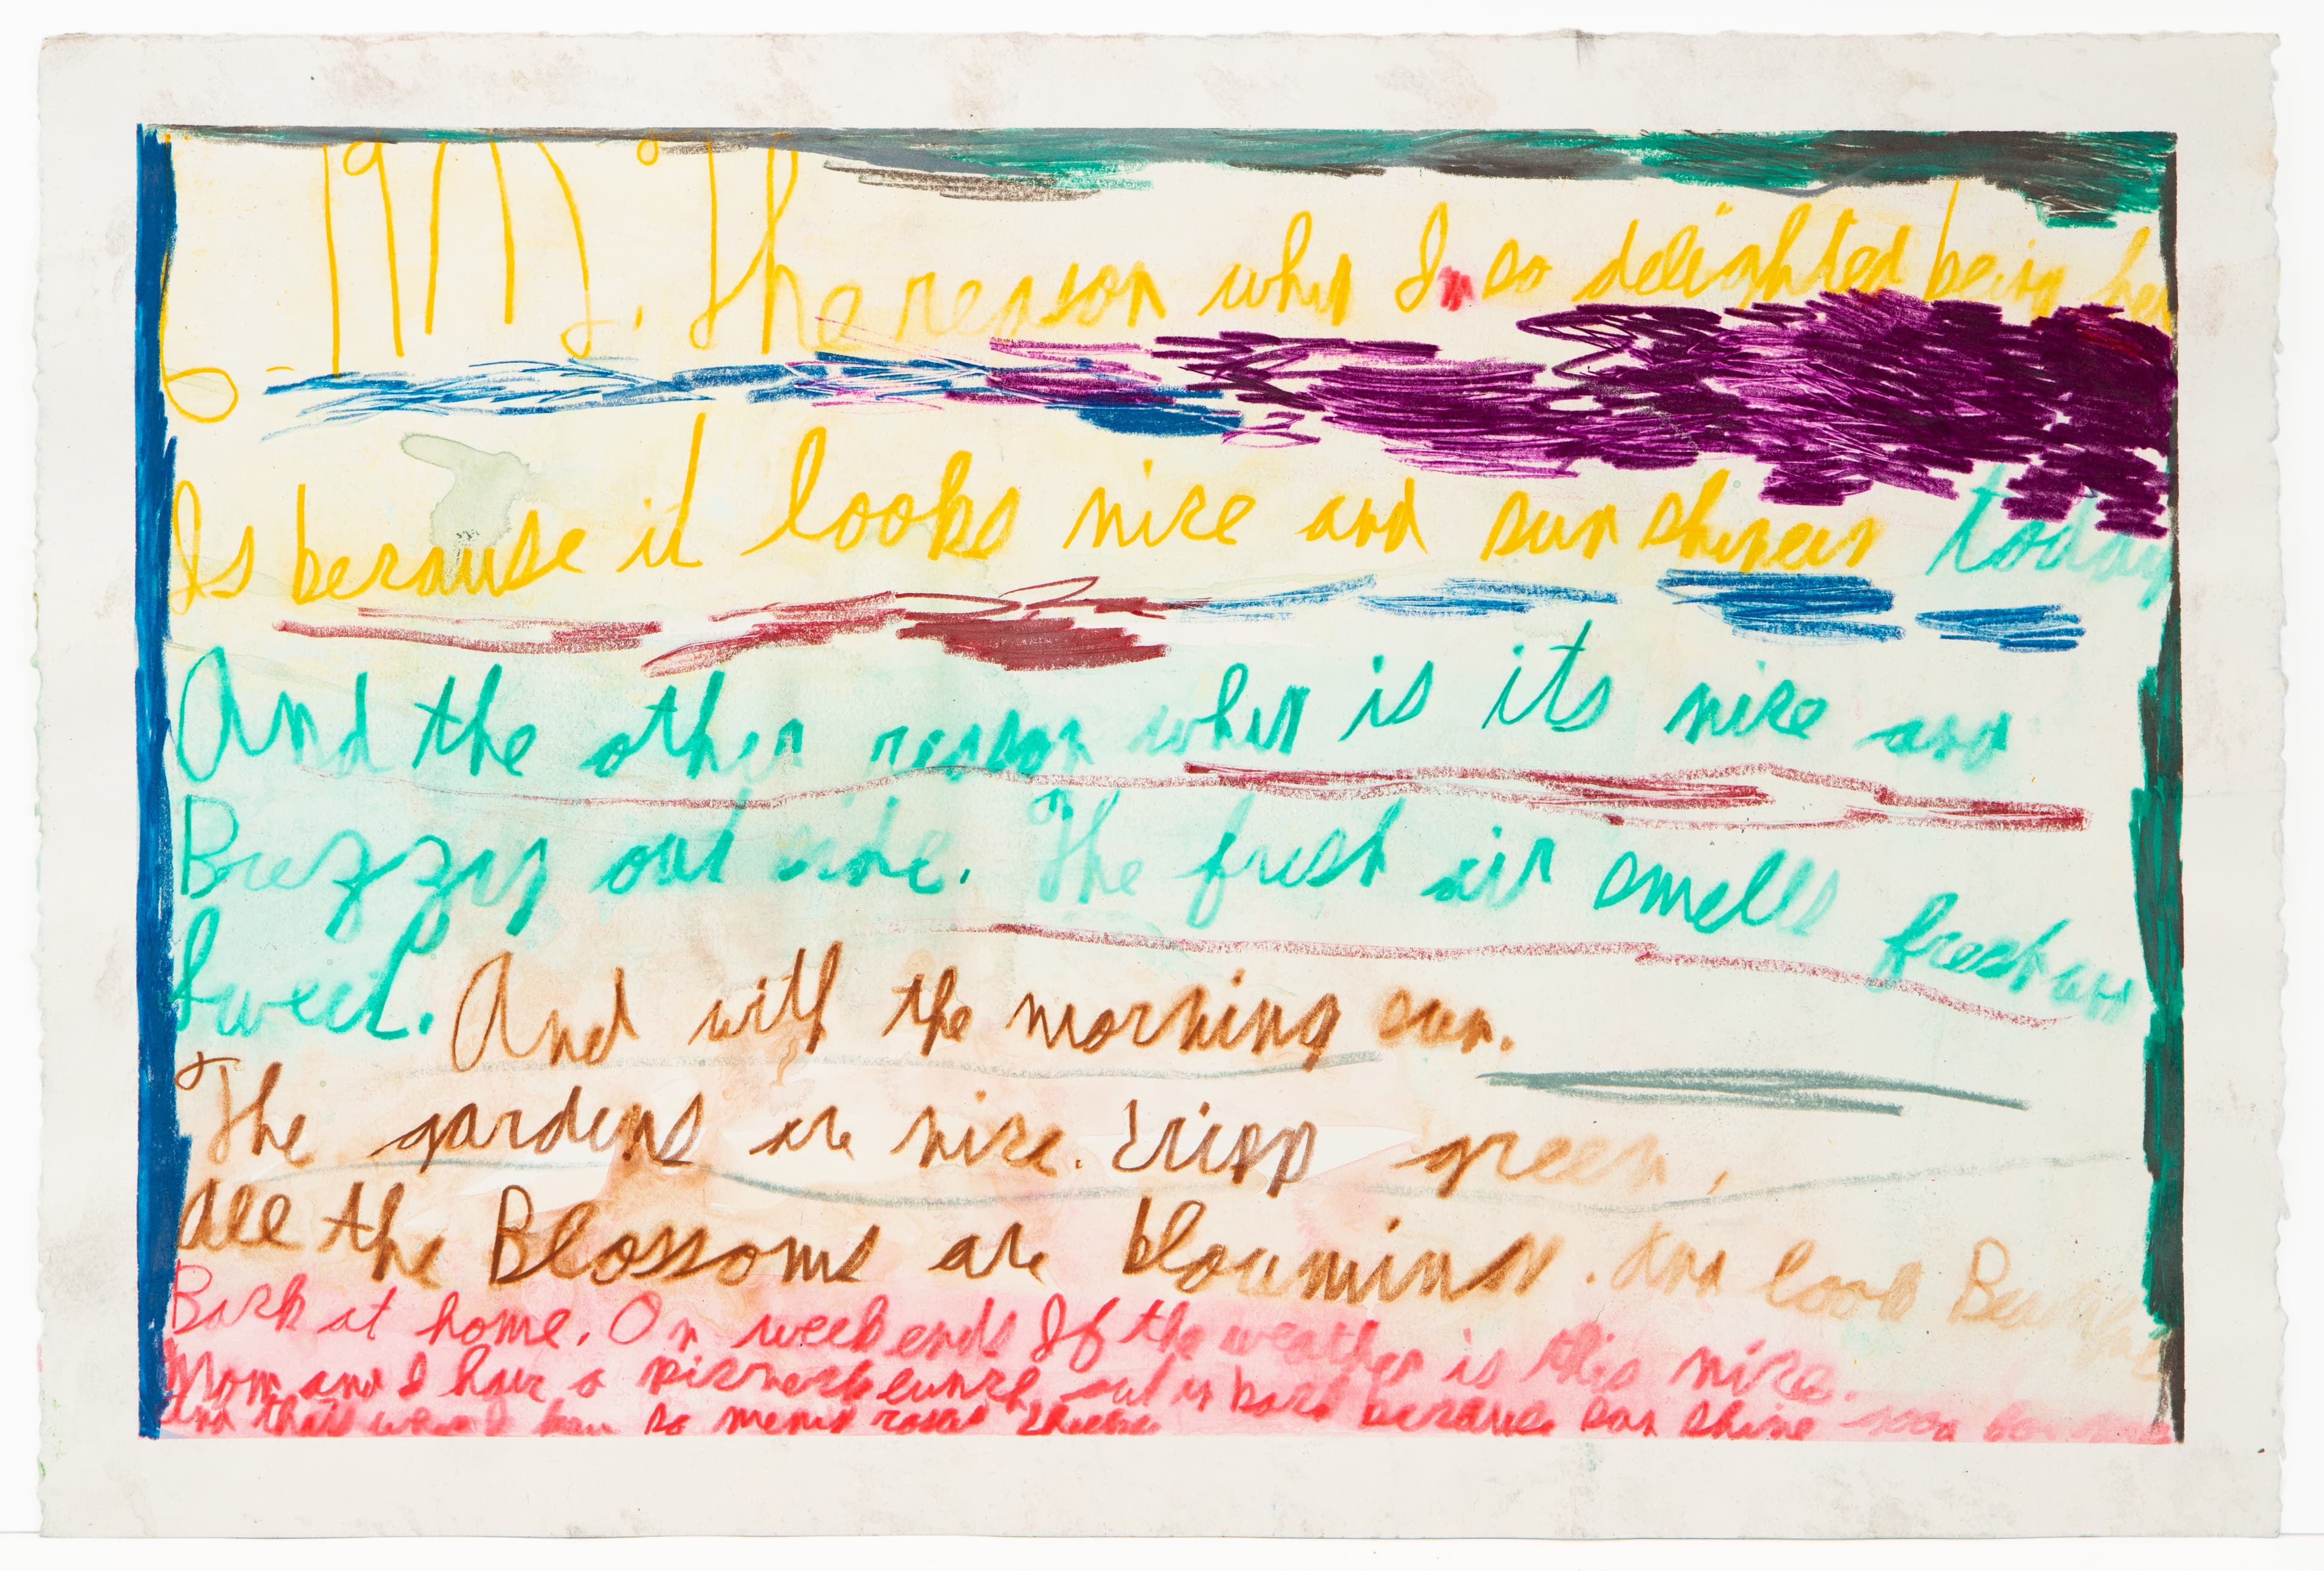 The reason why Im so delighted being her
Is because it looks nice and sun shineing today
And the other reason why is its nice and
Brezzey out side. The fresh air smells fresh and
sweet. And with the morning sun.
The gardens are nice. crisp green,
All the Blossoms are blooming. And look
Back at home. On week ends If the weather is this nice.
Mom and I have a lunch out in back because sun shine
And thats so